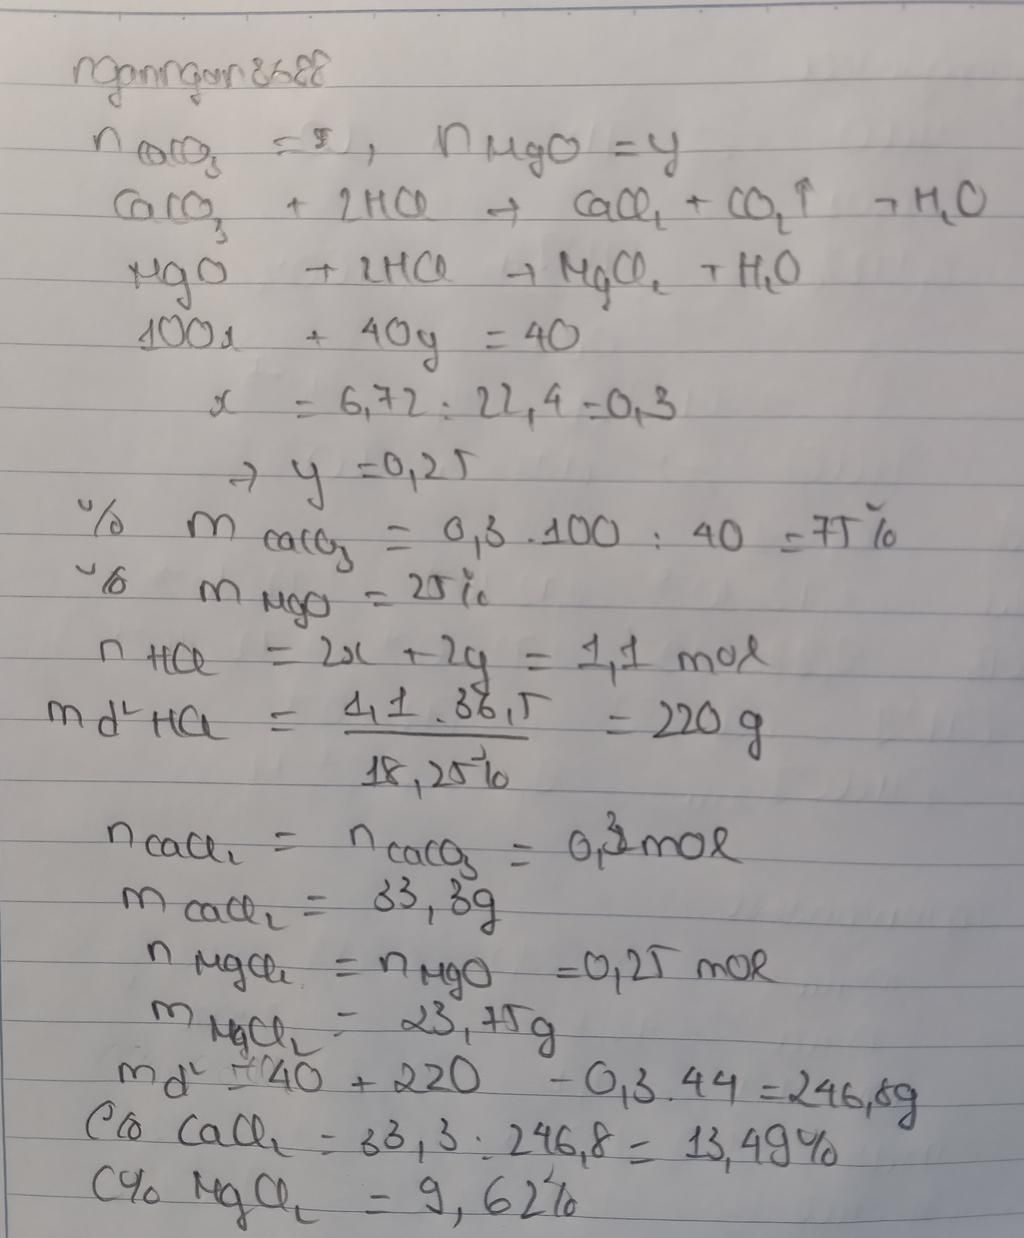 nganngan8688
nCaCO3 = x, nMgO = y
CaCO3 + 2HCl → CaCl2 + CO2↑ + H2O
MgO + 2HCl → MgCl2 + H2O
100x + 40y = 40
x = 6,72 : 22,4 = 0,3
→ y = 0,25
% mCaCO3 = 0,3.100 : 40 = 75%
% mMgO = 25%
nHCl = 2x + 2y = 1,1 mol
md² HCl = 1,1.36,5 / 18,25% = 220g
nCaCl2 = nCaCO3 = 0,3 mol
mCaCl2 = 33,3g
nMgCl2 = nMgO = 0,25 mol
mMgCl2 = 23,75g
md² = 40 + 220 - 0,3.44 = 246,8g
C% CaCl2 = 33,3 : 246,8 = 13,49%
C% MgCl2 = 9,62%